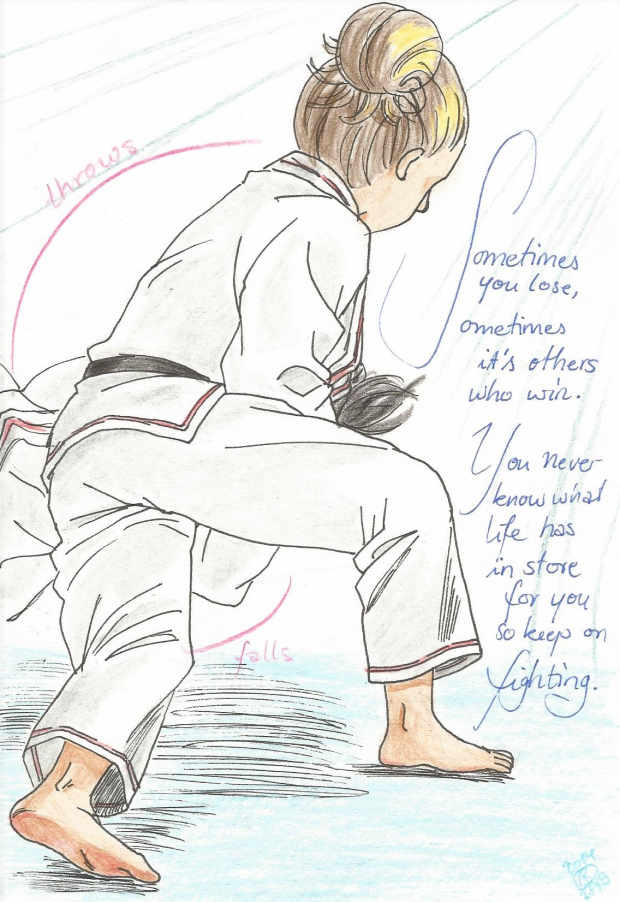 throws
Sometimes
you lose,
ometimes
it's others
who win.
You never
know what
life has
in store
for you
so keep on
fighting.
falls
2014
2019